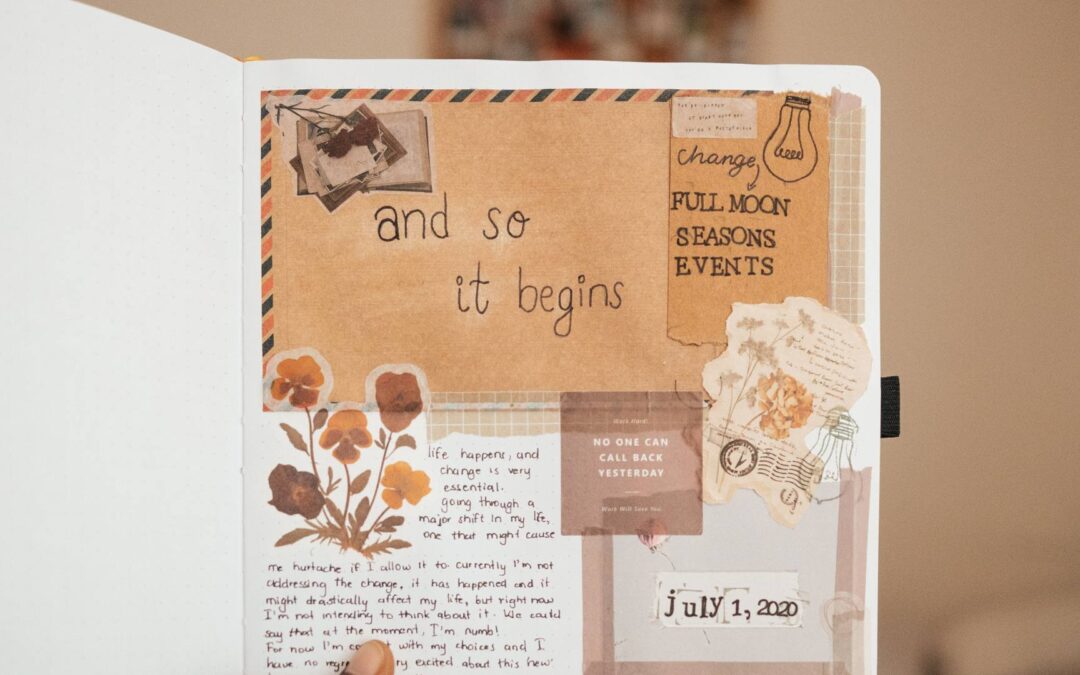 and so
it begins
change
FULL MOON
SEASONS
EVENTS
life happens, and
change is very
essential.
going through a
major shift in my life,
one that might cause
me hurtache if I allow it to. currently I'm not
addressing the change, it has happened and it
might drastically affect my life, but right now
I'm not intending to think about it. We could
say that at the moment, I'm numb!
For now I'm with my choices and I
have no excited about this new
Work Hard!
NO ONE CAN
CALL BACK
YESTERDAY
Work Will Save You.
july 1, 2020